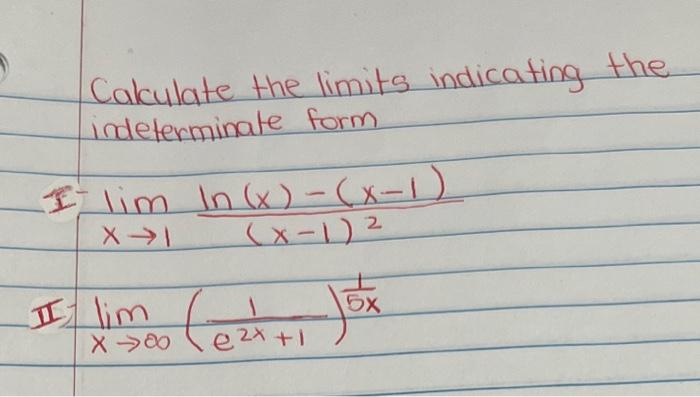 Calculate the limits indicating the
indeterminate form
I- lim x→1 ln(x)-(x-1) / (x-1)²
II- lim x→∞ (1 / e^2x+1)^1/5x